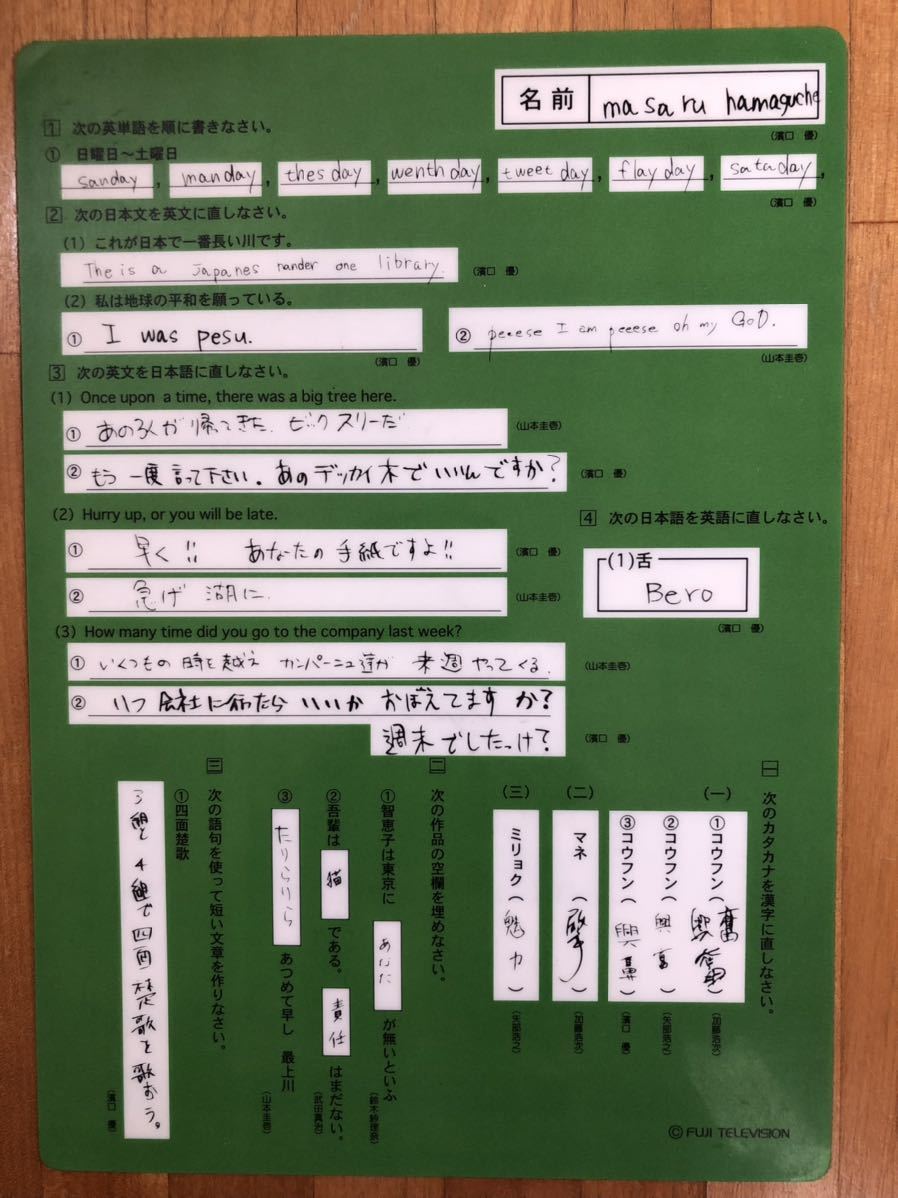 名前 masaru hamaguche
(濱口 優)
1 次の英単語を順に書きなさい。
① 日曜日〜土曜日
sanday, manday, thesday, wenthday, tweetday, flayday, sataday,
(濱口 優)
2 次の日本文を英文に直しなさい。
(1) これが日本で一番長い川です。
The is a Japanes nander one library. (濱口 優)
(2) 私は地球の平和を願っている。
① I was pesu.
(濱口 優)
② peeese I am peeese oh my GoD.
(山本圭壱)
3 次の英文を日本語に直しなさい。
(1) Once upon a time, there was a big tree here.
① あの3人が帰ってきた ビックスリーだ (山本圭壱)
② もう一度言って下さい。あのデッカイ木でいいんですか? (濱口 優)
(2) Hurry up, or you will be late.
① 早く!! あなたの手紙ですよ!! (濱口 優)
② 急げ 湖に (山本圭壱)
(3) How many time did you go to the company last week?
① いくつもの時を越え カンパーニュ達が 来週やってくる. (山本圭壱)
② いつ会社に行ったらいいか おぼえてますか?
週末でしたっけ? (濱口 優)
4 次の日本語を英語に直しなさい。
(1)舌
Bero
(濱口 優)
一 次のカタカナを漢字に直しなさい。
(一)
① コウフン ( ) (加藤浩次)
② コウフン ( ) (矢部浩之)
③ コウフン ( ) (濱口 優)
(二)
マネ ( ) (加藤浩次)
(三)
ミリョク (魅力) (矢部浩之)
二 次の作品の空欄を埋めなさい。
① 智恵子は東京に あなた が無いといふ (鈴木紗理奈)
② 吾輩は 猫 である。 責任 はまだない。 (武田真治)
③ たりらりら あつめて早し 最上川 (山本圭壱)
三 次の語句を使って短い文章を作りなさい。
① 四面楚歌
3組と4組で四面楚歌を歌おう。 (濱口 優)
© FUJI TELEVISION